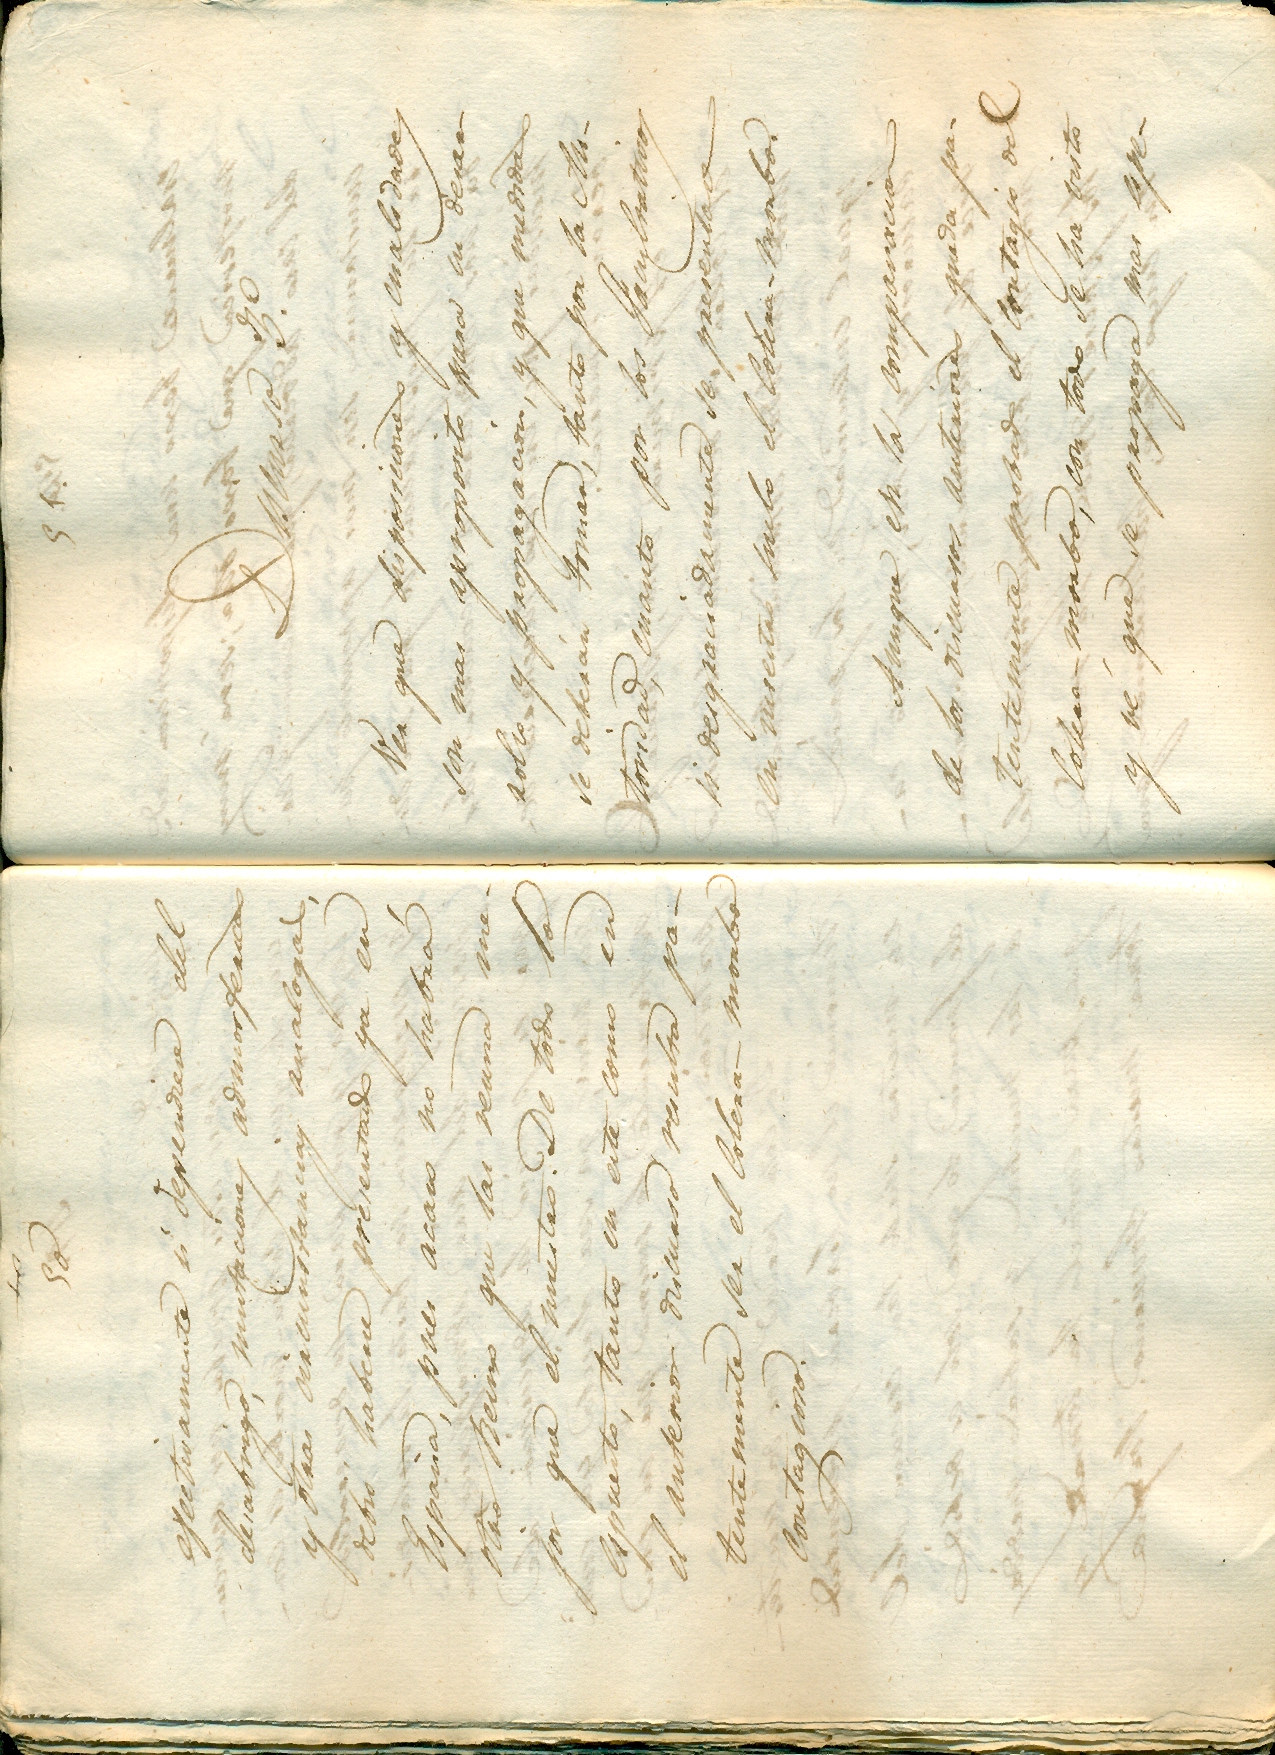 50
efectivamente si dependiere del
desabrigo, mutaciones admosfericas
y otras circunstancias analogas,
debio haberse presentado ya en
España, pues acaso no habrá
otro Reino que las reuna me-
jor que el nuestro. De todo lo
espuesto, tanto en este como en
el anterior discurso resulta pa-
tentemente ser el Colera-morbo
Contagioso.
51
Discurso 3.º
Ver que disposiciones y cualidades
son mas aproposito para su desar-
rollo y propagacion, y que medidas
se deberán tomar, tanto por la Au-
toridad, cuanto por los facultativos
si desgraciadamente se presentase
en nuestro suelo el Colera-morbo.
Aunque en la comparacion
de los discursos anteriores queda pa-
tentemente probado el Contagio del
Colera-morbo, con todo se ha visto
y vé que se propaga mas espe-